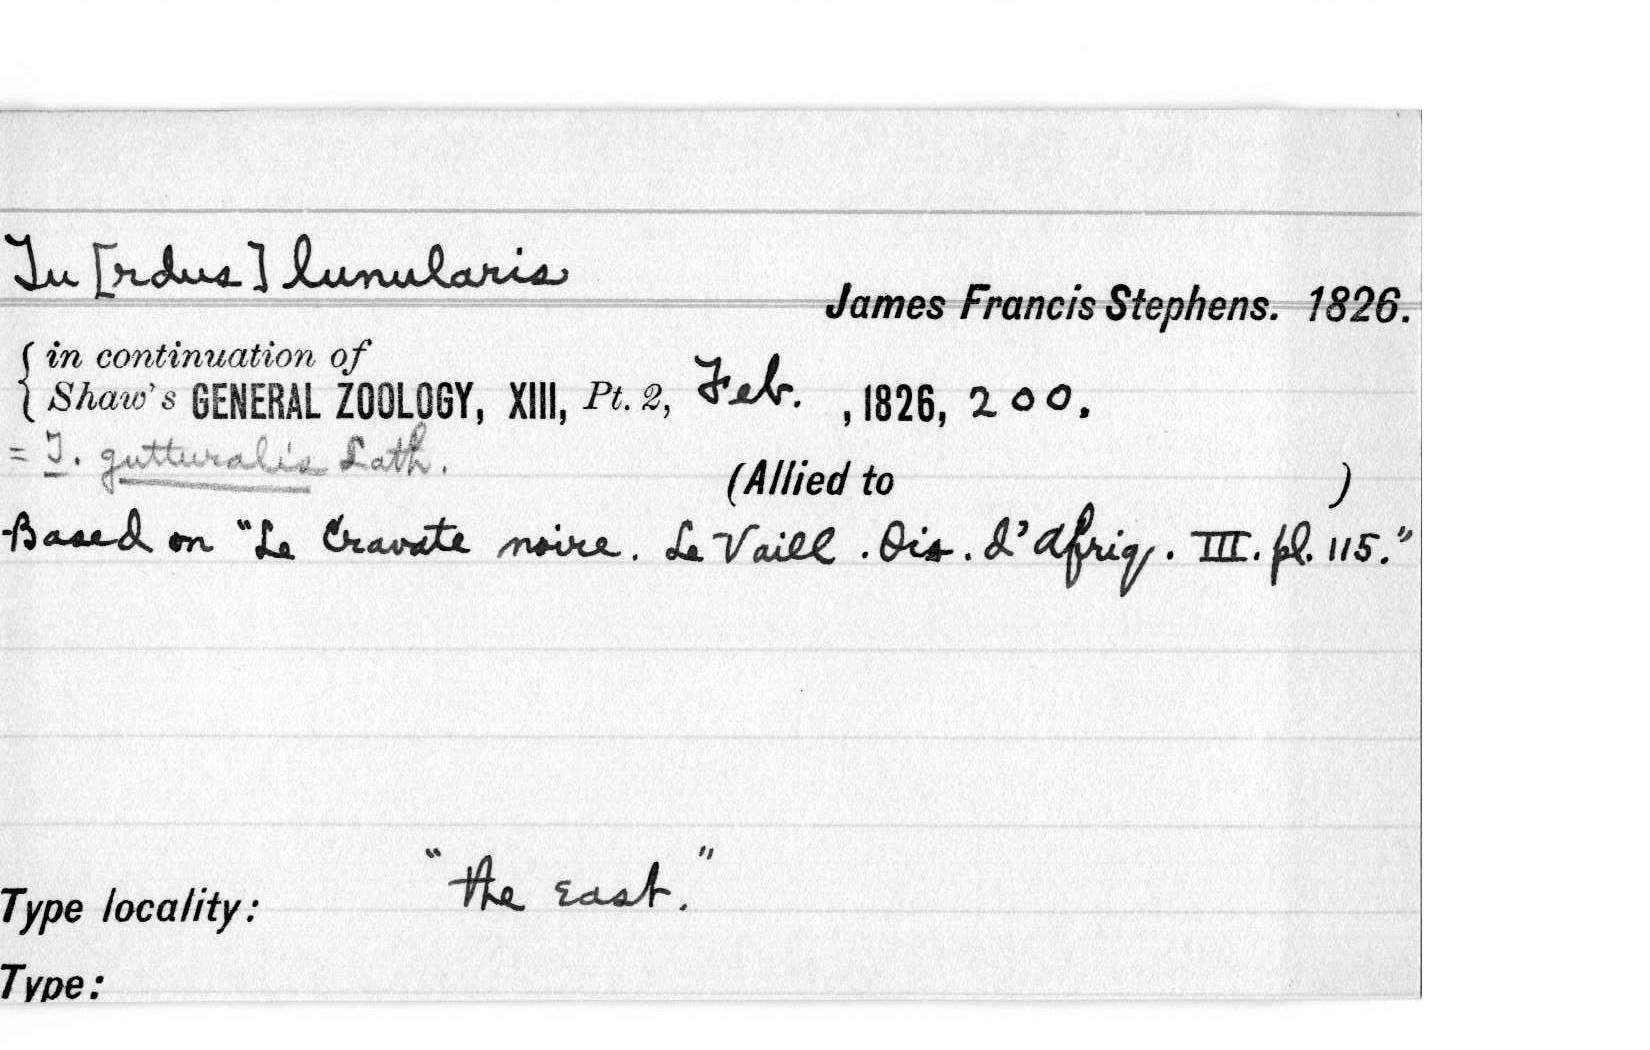 Tu [rdus] lunularis
James Francis Stephens. 1826.
{ in continuation of
Shaw's GENERAL ZOOLOGY, XIII, Pt. 2, Feb. , 1826, 200.
= T. gutturalis Lath.
(Allied to )
Based on "Le Cravate noire. Le Vaill. Ois. d'Afriq. III. pl. 115."
Type locality: "the East."
Type: